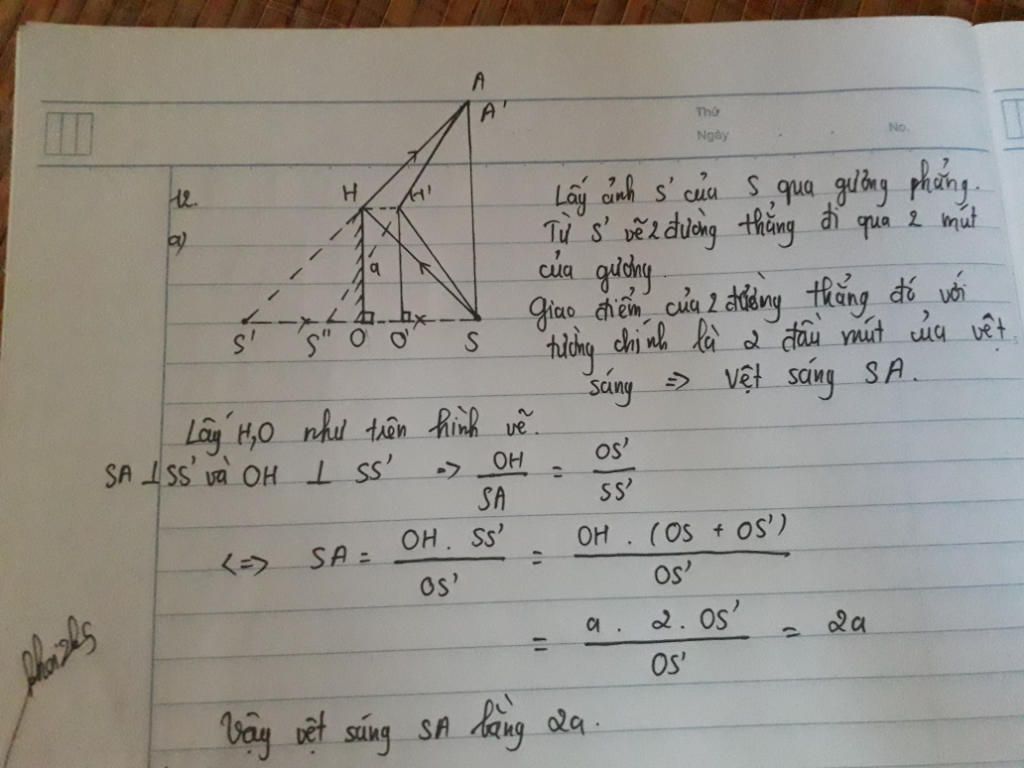 A
A'
Thứ
Ngày
No.
12.
H
H'
Lấy ảnh S' của S qua gương phẳng.
a)
Từ S' vẽ 2 đường thẳng đi qua 2 mút
a
của gương.
Giao điểm của 2 đường thẳng đó với
S' S'' O O' S
tường chính là 2 đầu mút của vệt
sáng => Vệt sáng SA.
Lấy H,O như trên hình vẽ.
SA ⊥ SS' và OH ⊥ SS' => OH/SA = OS'/SS'
<=> SA = OH . SS'/OS' = OH . (OS + OS')/OS'
= a . 2 . OS'/OS' = 2a
Vậy vệt sáng SA bằng 2a.